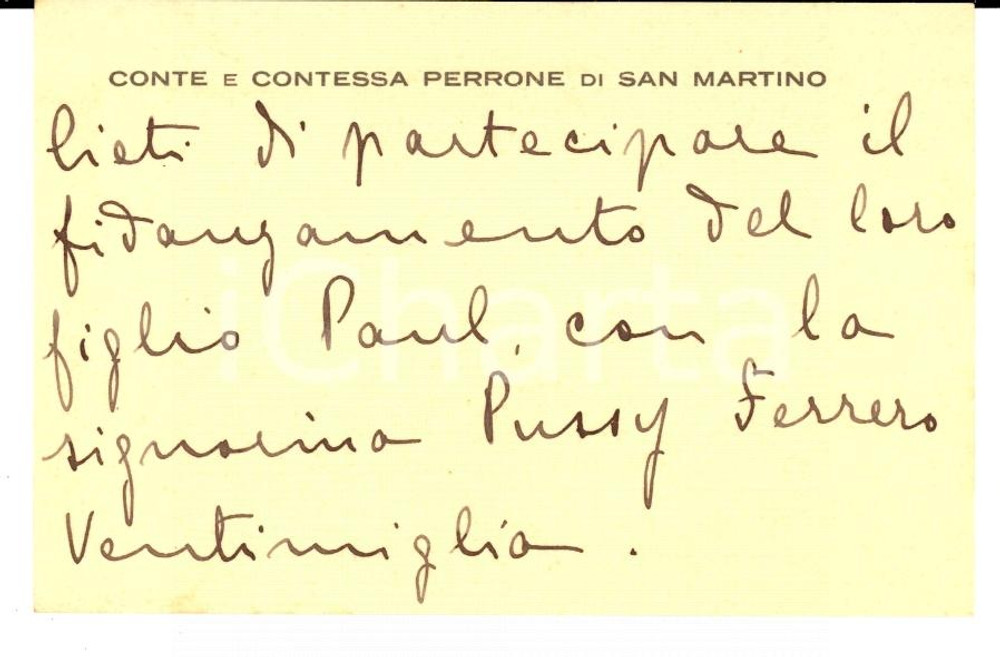 CONTE E CONTESSA PERRONE DI SAN MARTINO
lieti di partecipare il
fidanzamento del loro
figlio Paul, con la
signorina Pussy Ferrero
Ventimiglia.
iCharta